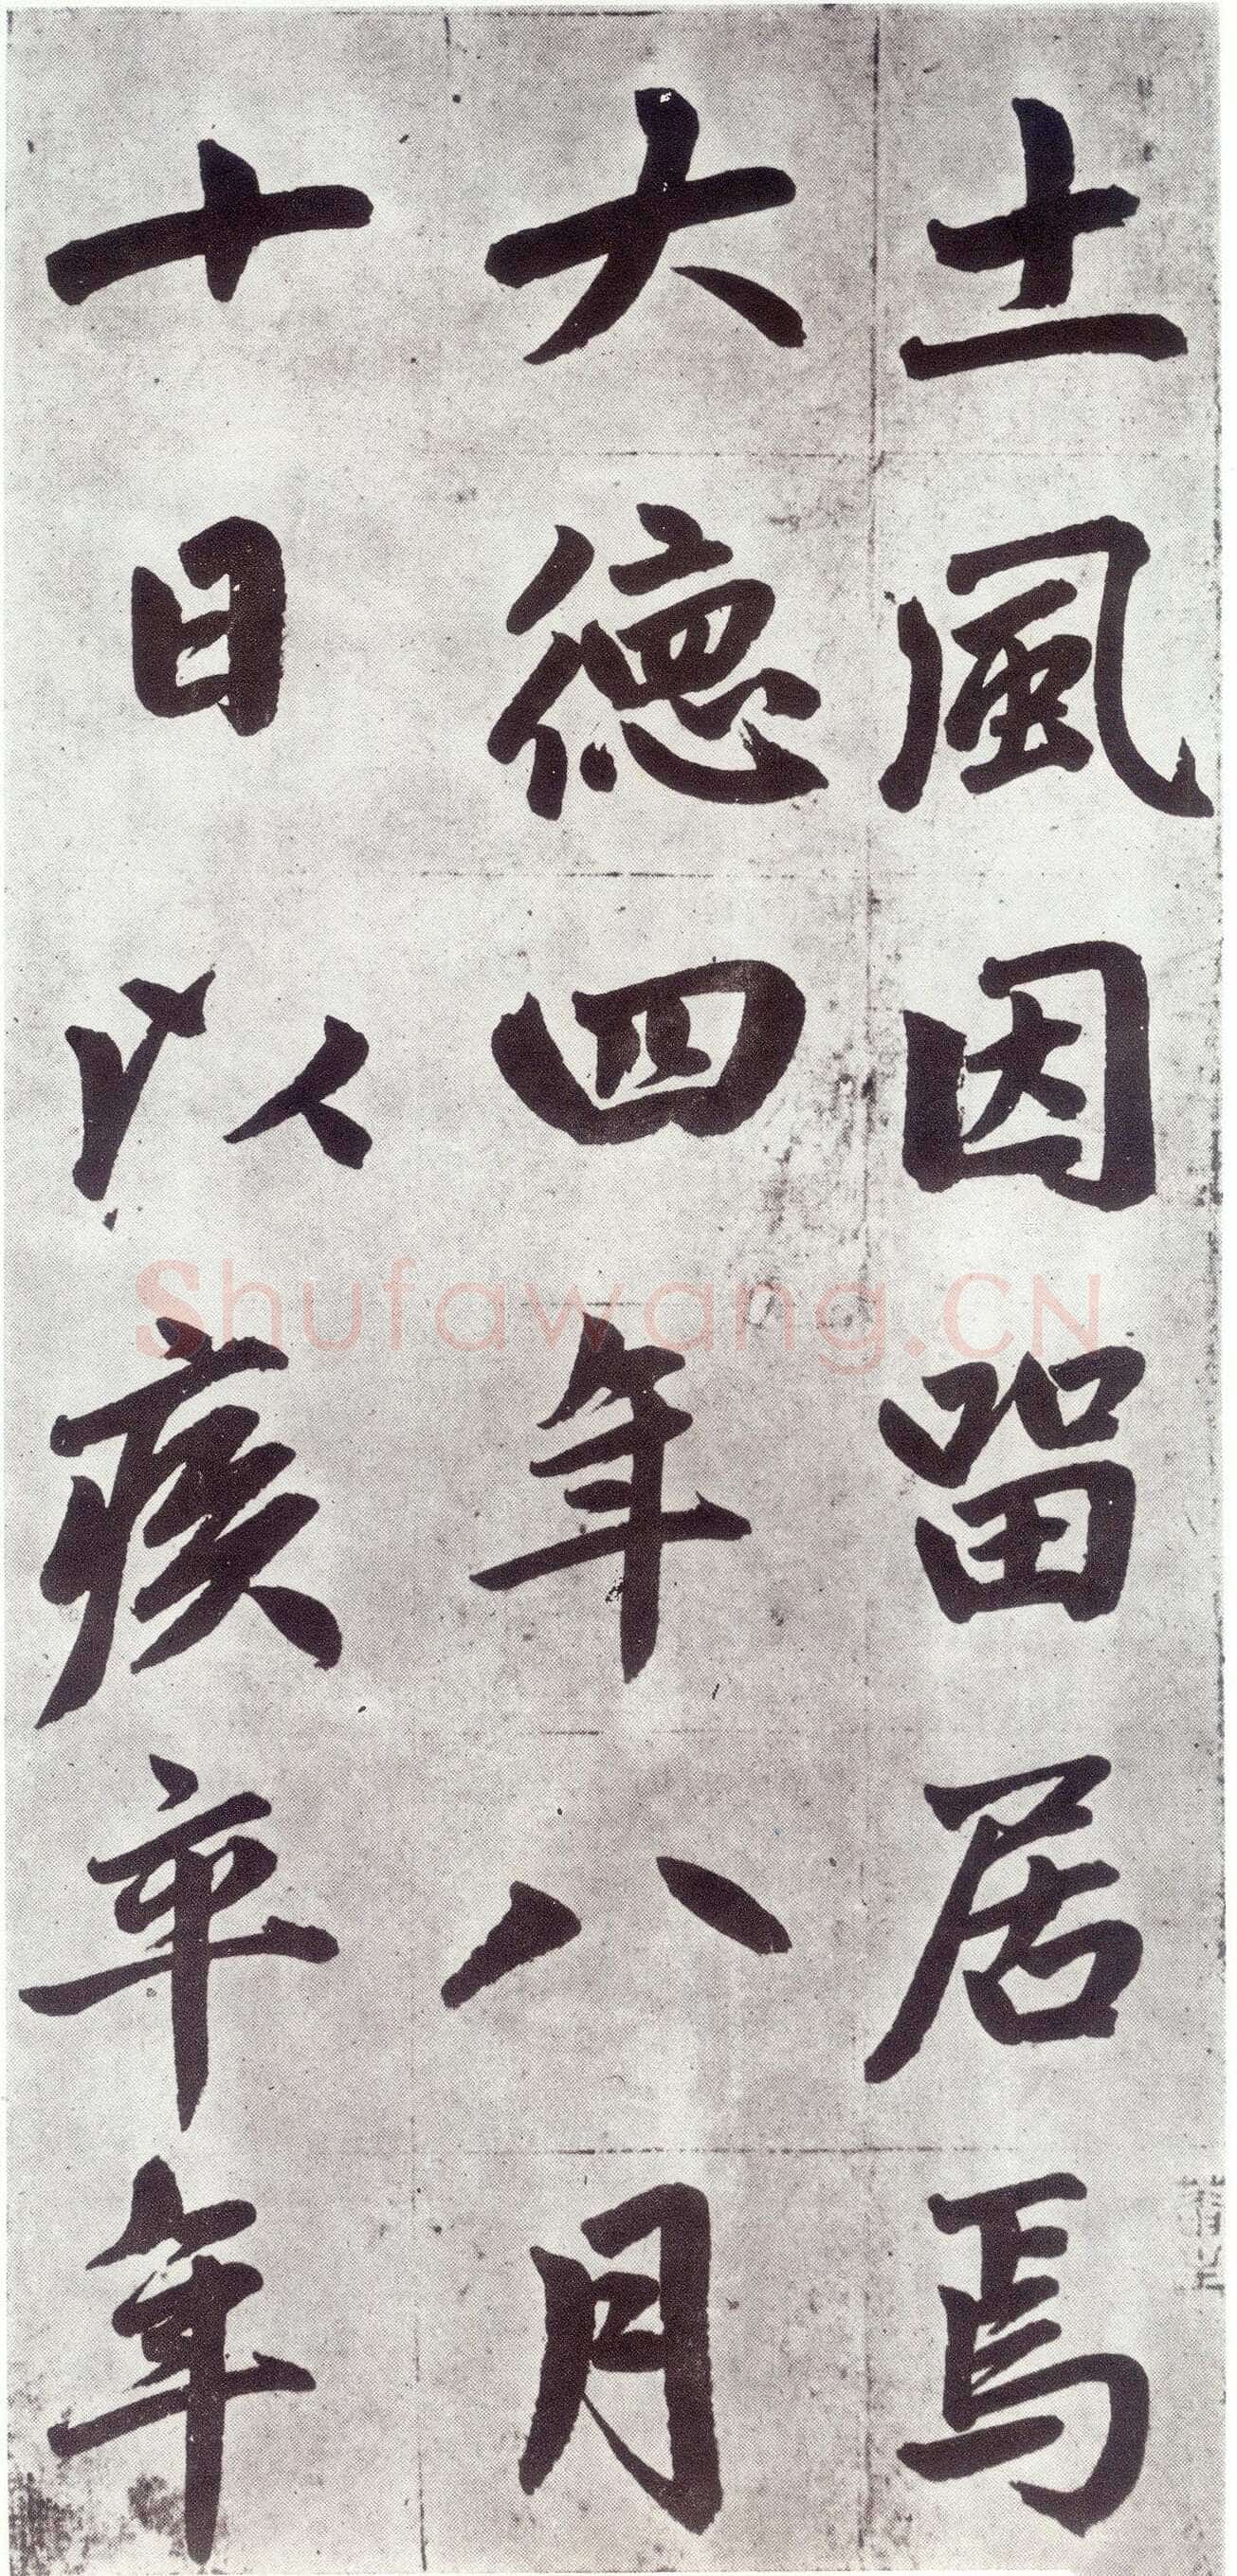 土風因留居焉
大德四年八月
十日以疾卒年
Shufawang.CN